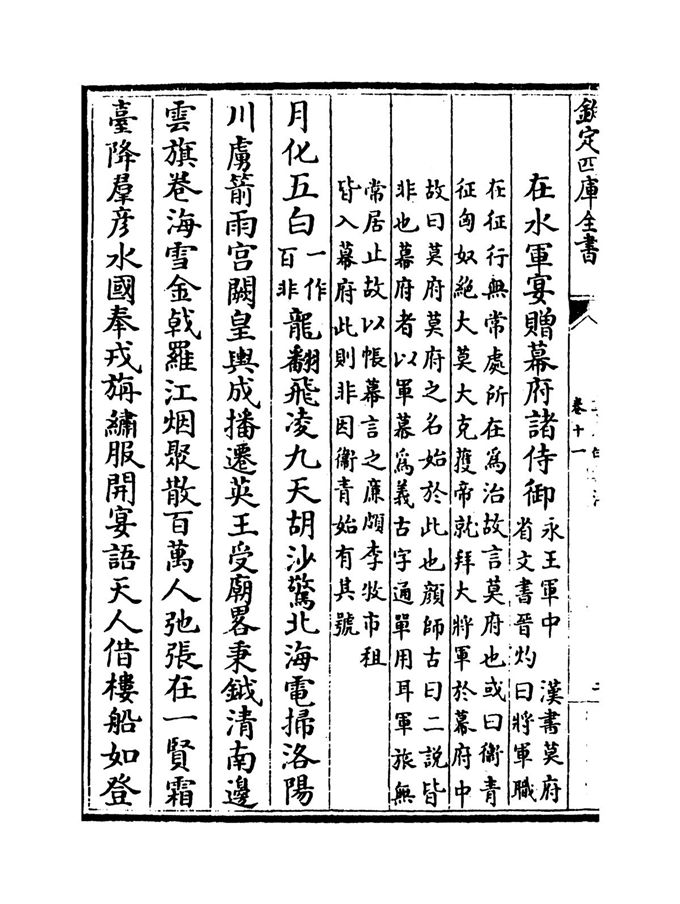 欽定四庫全書
卷十一
在水軍宴贈幕府諸侍御
永王軍中　漢書莫府
省文書晉灼曰將軍職
在征行無常處所在為治故言莫府也或曰衛青
征匈奴絕大莫大克獲帝就拜大將軍於幕府中
故曰莫府莫府之名始於此也顔師古曰二説皆
非也幕府者以軍幕爲義古字通單用耳軍旅無
常居止故以帳幕言之廉頗李牧市租
皆入幕府此則非因衛青始有其號
月化五白一作百非龍翻飛凌九天胡沙驚北海電掃洛陽
川虜箭雨宫闕皇輿成播遷英王受廟畧秉鉞清南邊
雲旗卷海雪金戟羅江烟聚散百萬人弛張在一賢霜
臺降羣彦水國奉戎旃繡服開宴語天人借樓船如登